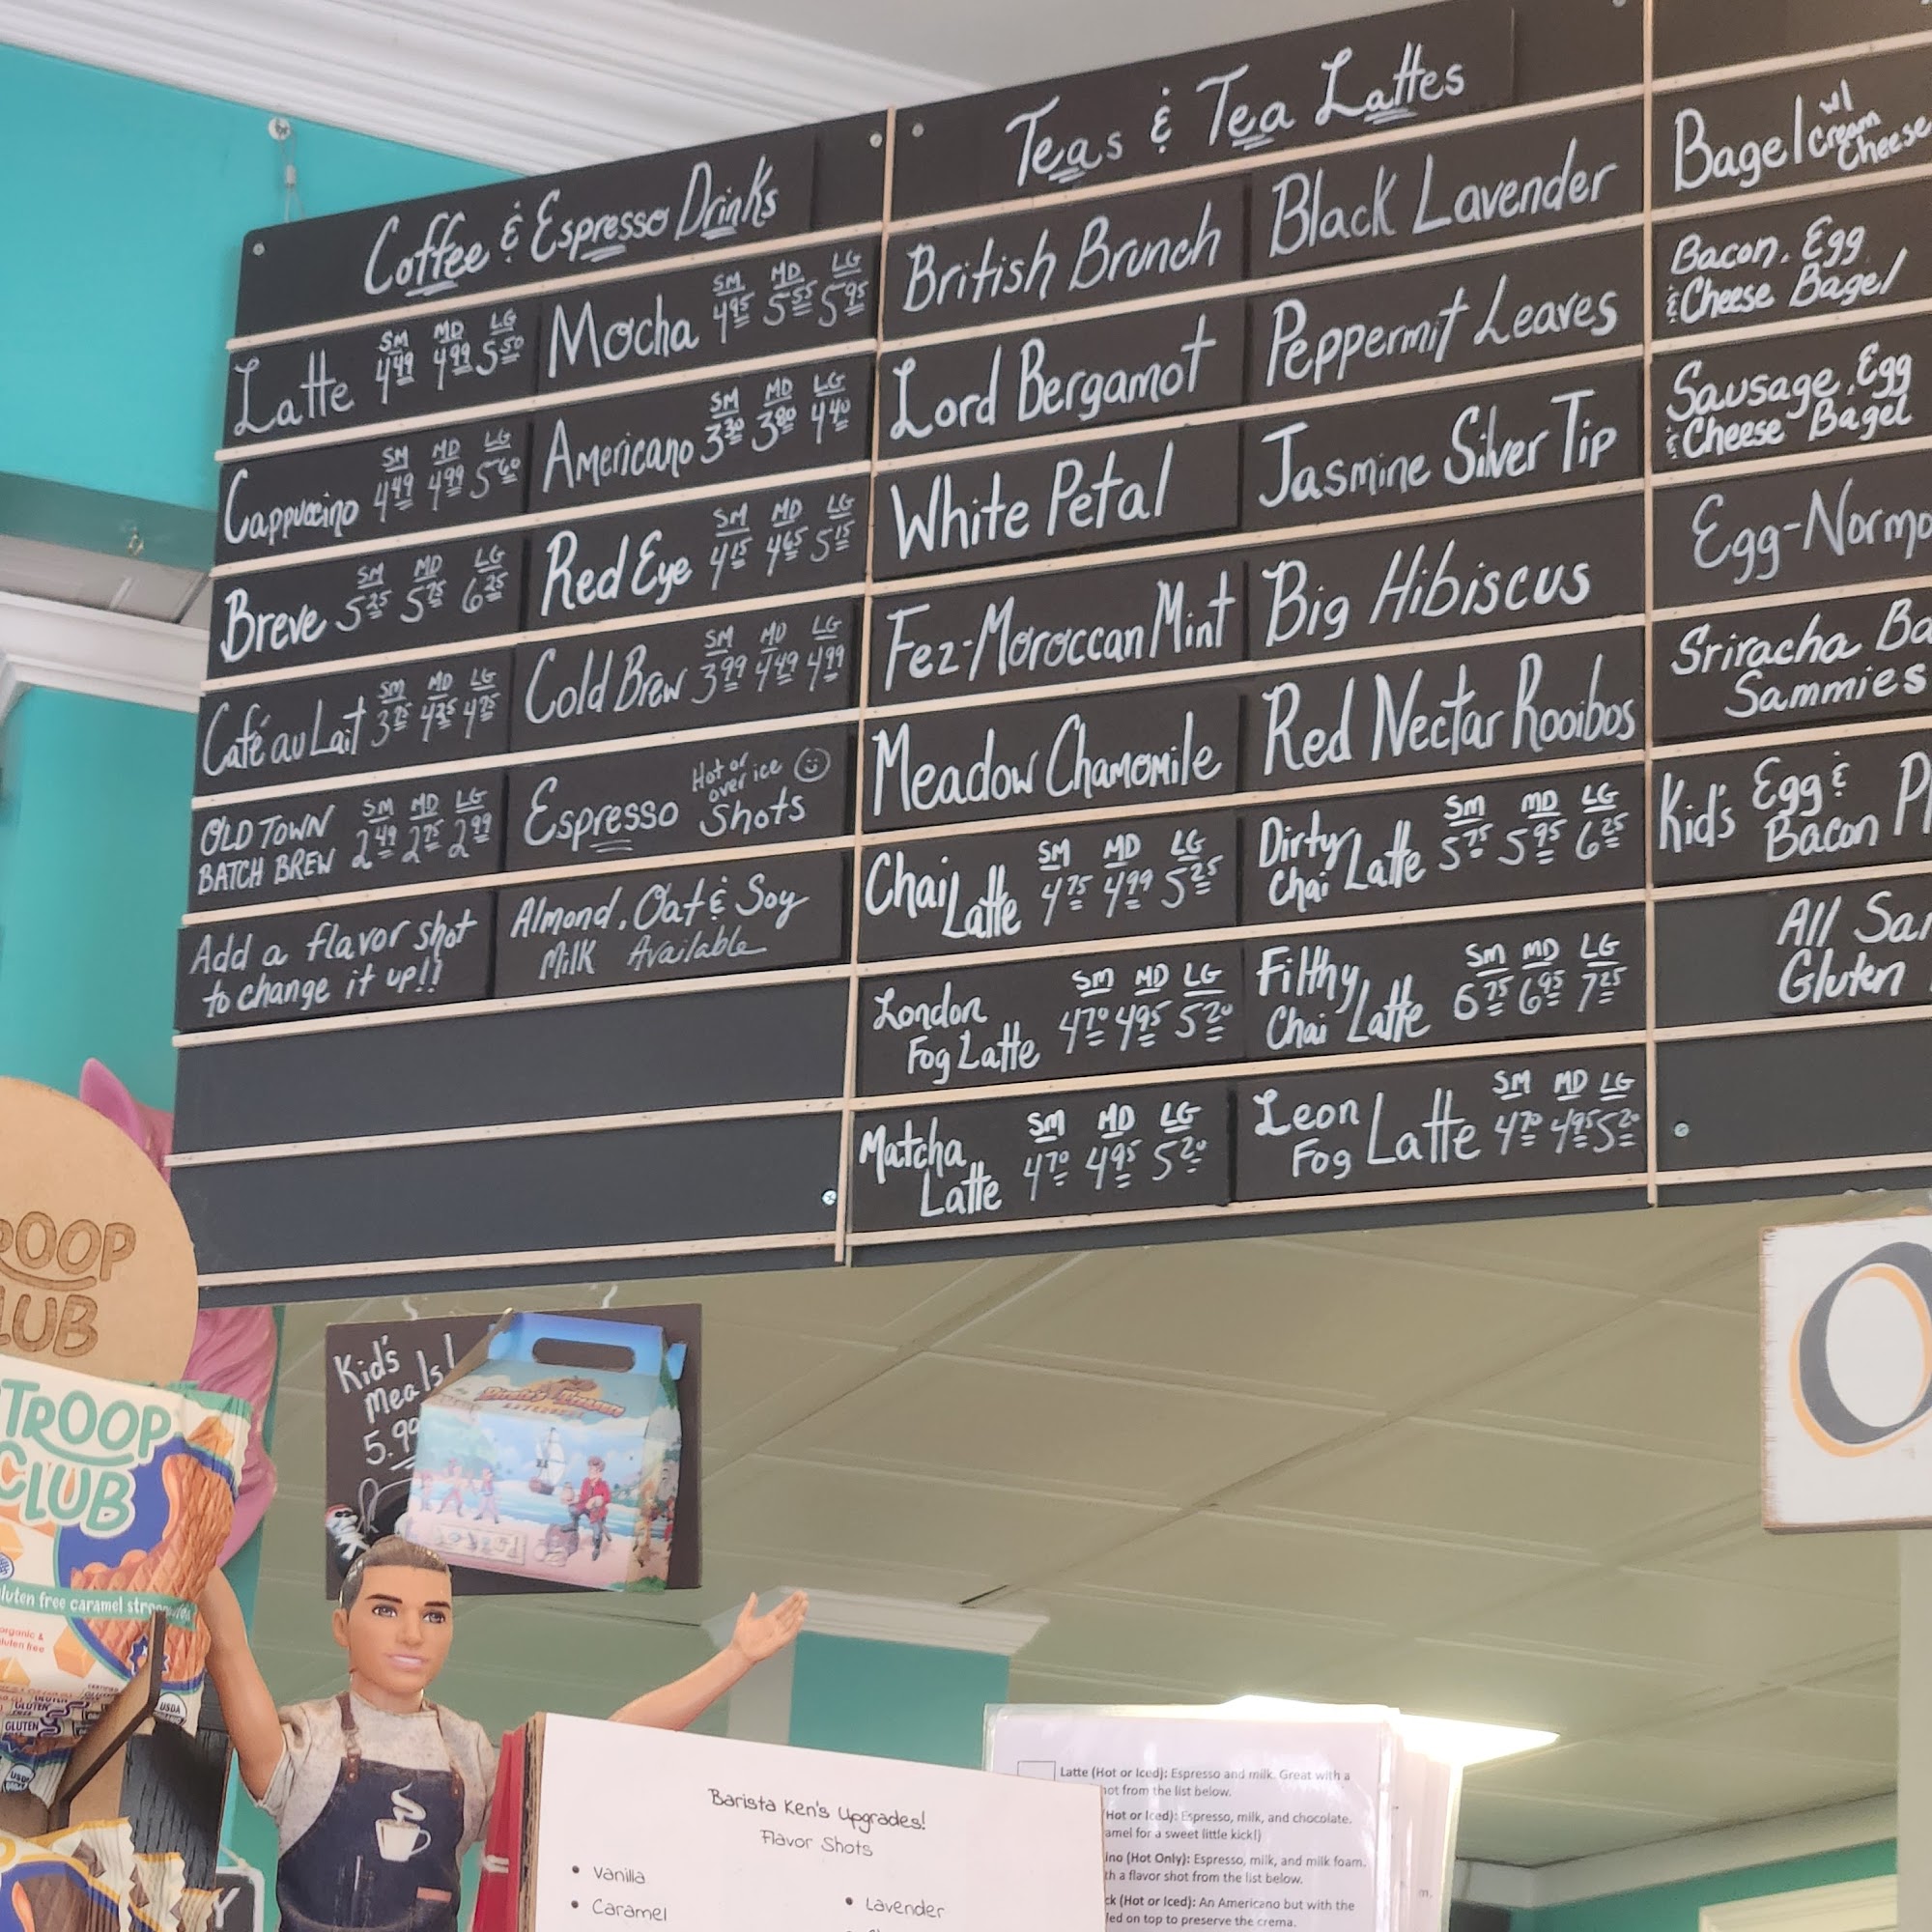 Coffee & Espresso Drinks
Latte SM 4.49 MD 4.99 LG 5.50
Cappuccino SM 4.49 MD 4.99 LG 5.60
Breve SM 5.25 MD 5.75 LG 6.25
Café au Lait SM 3.75 MD 4.25 LG 4.75
OLD TOWN
BATCH BREW SM 2.49 MD 2.75 LG 2.99
Add a flavor shot
to change it up!!
Mocha SM 4.95 MD 5.55 LG 5.95
Americano SM 3.30 MD 3.80 LG 4.40
Red Eye SM 4.15 MD 4.65 LG 5.15
Cold Brew SM 3.99 MD 4.49 LG 4.99
Espresso Hot or
over ice
Shots
Almond, Oat & Soy
Milk Available
Teas & Tea Lattes
British Brunch
Lord Bergamot
White Petal
Fez-Moroccan Mint
Meadow Chamomile
Chai
Latte SM 4.75 MD 4.99 LG 5.25
London
Fog Latte SM 4.70 MD 4.95 LG 5.20
Matcha
Latte SM 4.70 MD 4.95 LG 5.20
Black Lavender
Peppermit Leaves
Jasmine Silver Tip
Big Hibiscus
Red Nectar Rooibos
Dirty
Chai Latte SM 5.75 MD 5.95 LG 6.25
Filthy
Chai Latte SM 6.75 MD 6.95 LG 7.25
Leon
Fog Latte SM 4.70 MD 4.95 LG 5.20
Bagel w/
Cream
Cheese
Bacon, Egg
& Cheese Bagel
Sausage, Egg
& Cheese Bagel
Egg-Normo
Sriracha Ba
Sammies
Kid's Egg &
Bacon
All
Gluten
ROOP
LUB
TROOP
CLUB
gluten free caramel
organic &
gluten free
GLUTEN
GLUTEN
USDA
Kid's
Meals!
5.99
Pirate's Treasure
Barista Ken's Upgrades!
Flavor Shots
• Vanilla
• Caramel
• Lavender
Latte (Hot or Iced): Espresso and milk. Great with a
hot from the list below.
(Hot or Iced): Espresso, milk, and chocolate.
amel for a sweet little kick!)
ino (Hot Only): Espresso, milk, and milk foam.
th a flavor shot from the list below.
ck (Hot or Iced): An Americano but with the
led on top to preserve the crema.